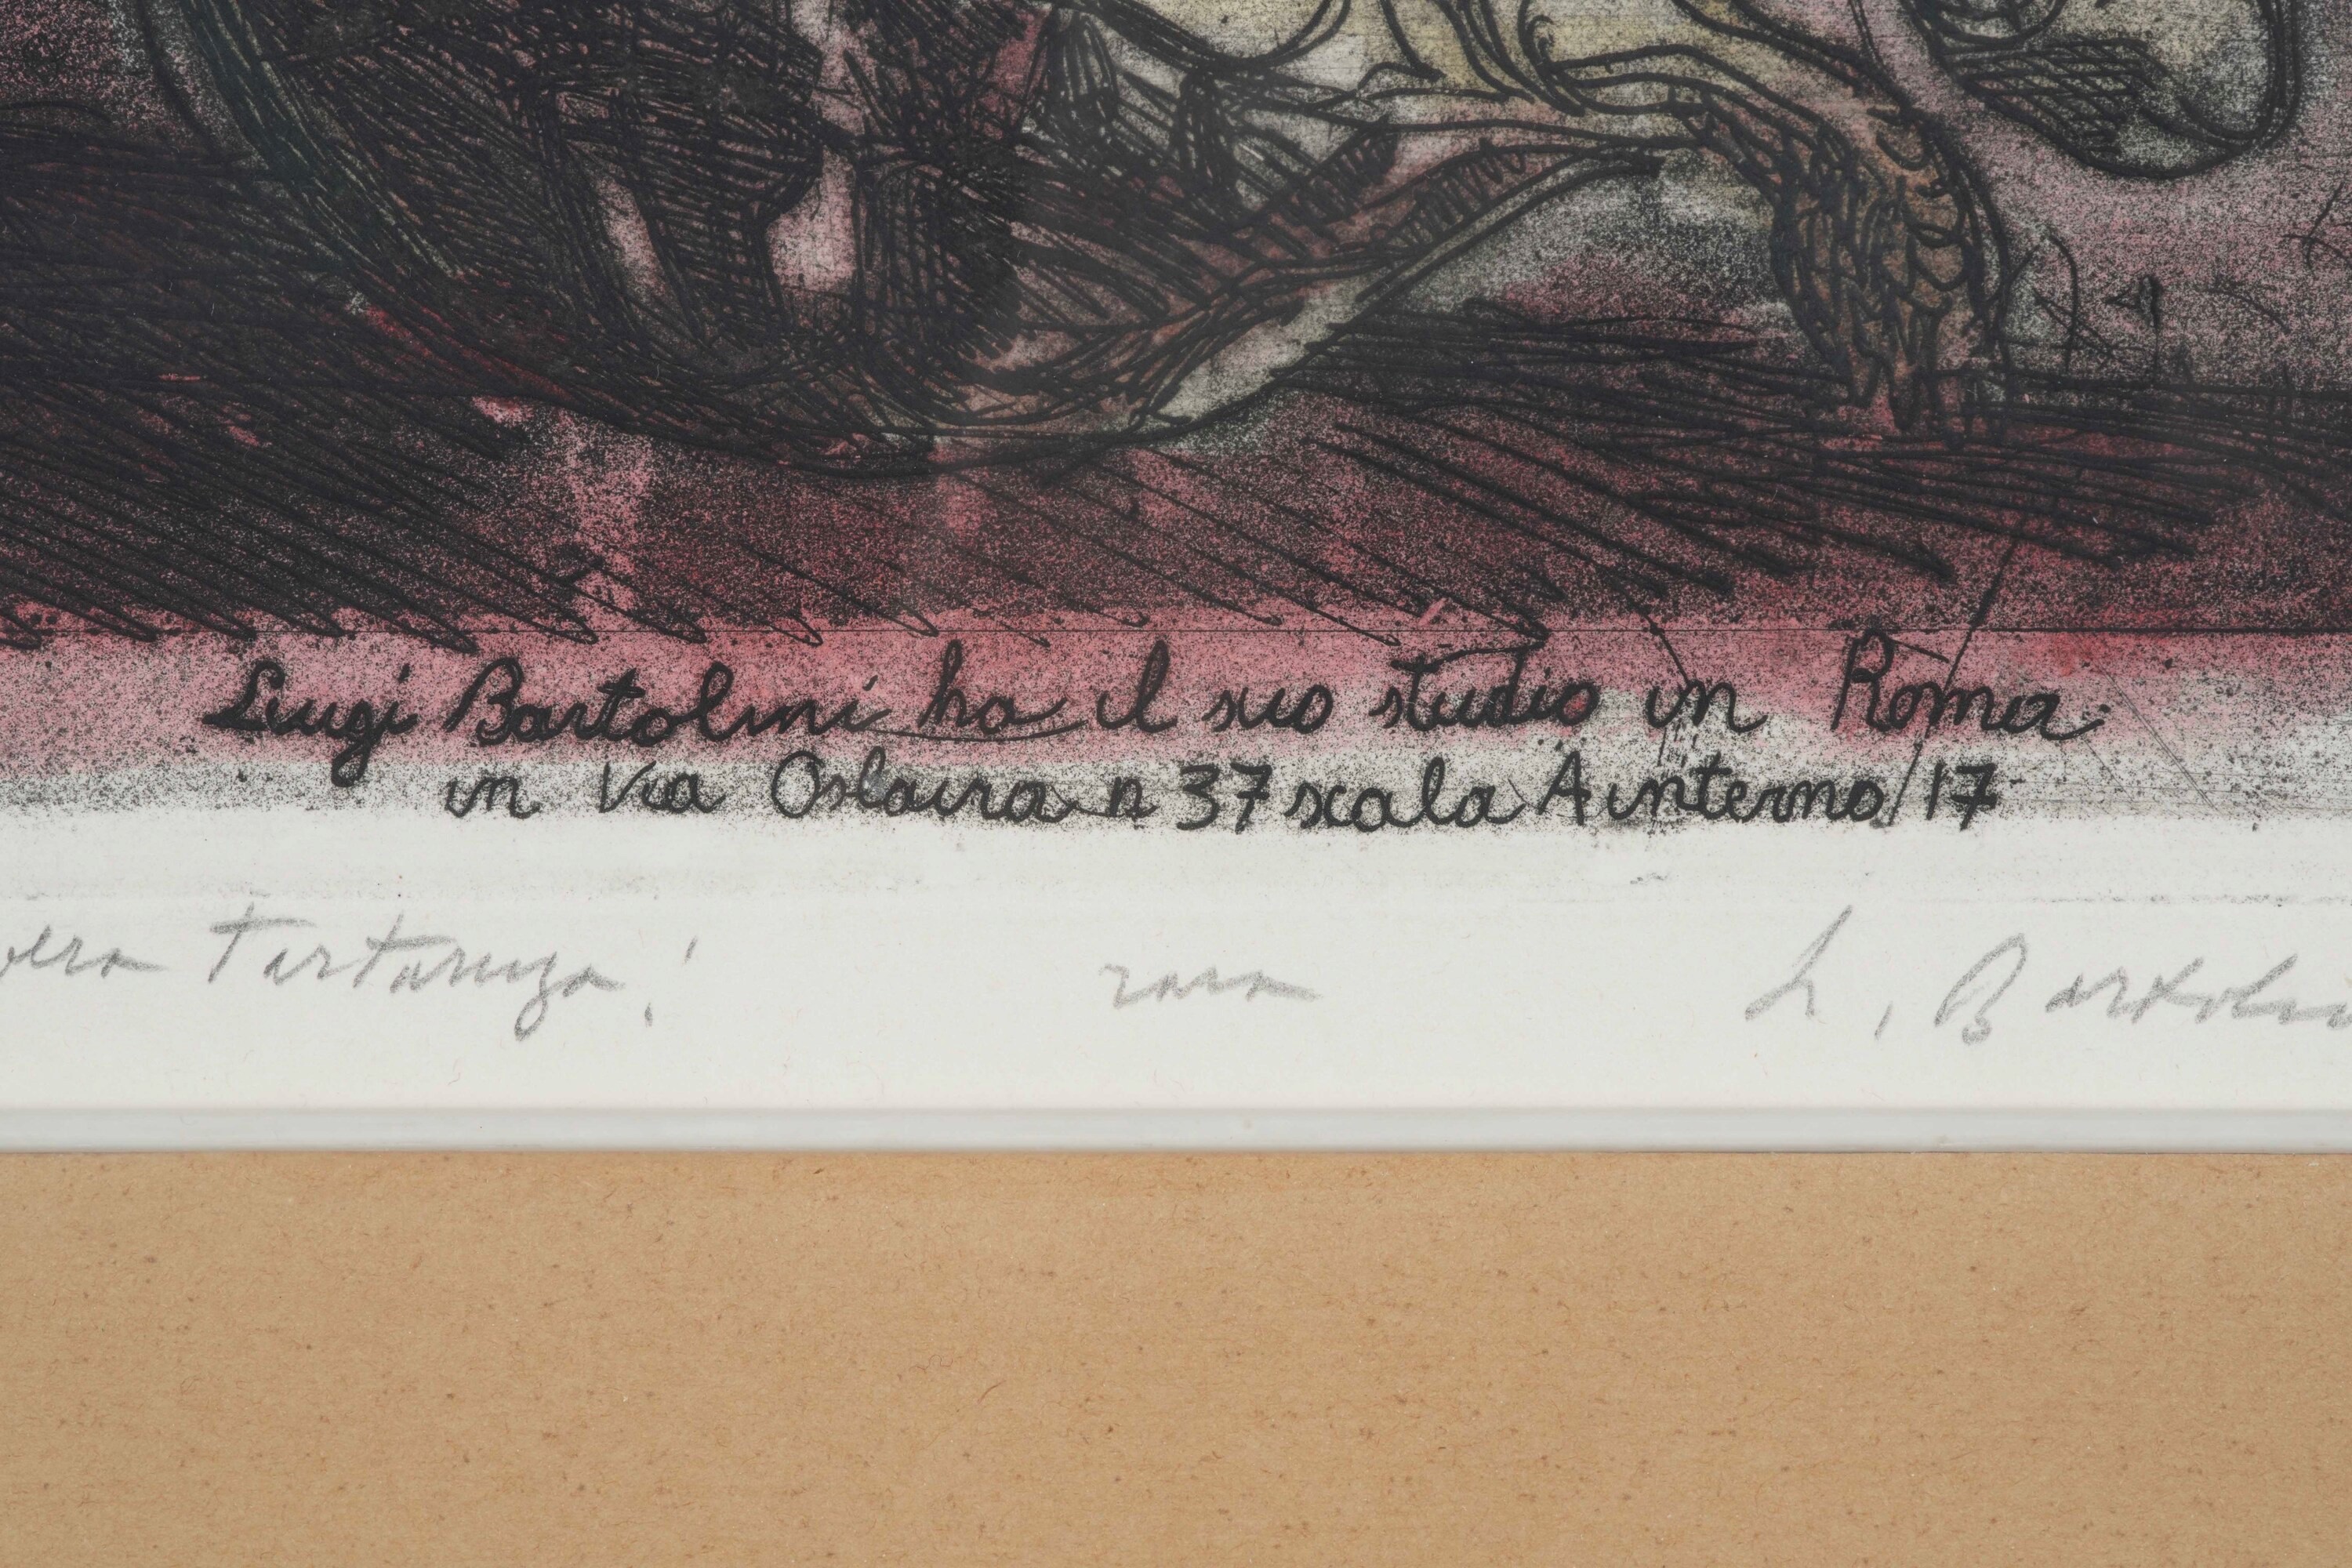 Luigi Bartolini ha il suo studio in Roma
in Via Oslavia n 37 scala A interno 17
Tartaruga! rara L. Bartolini